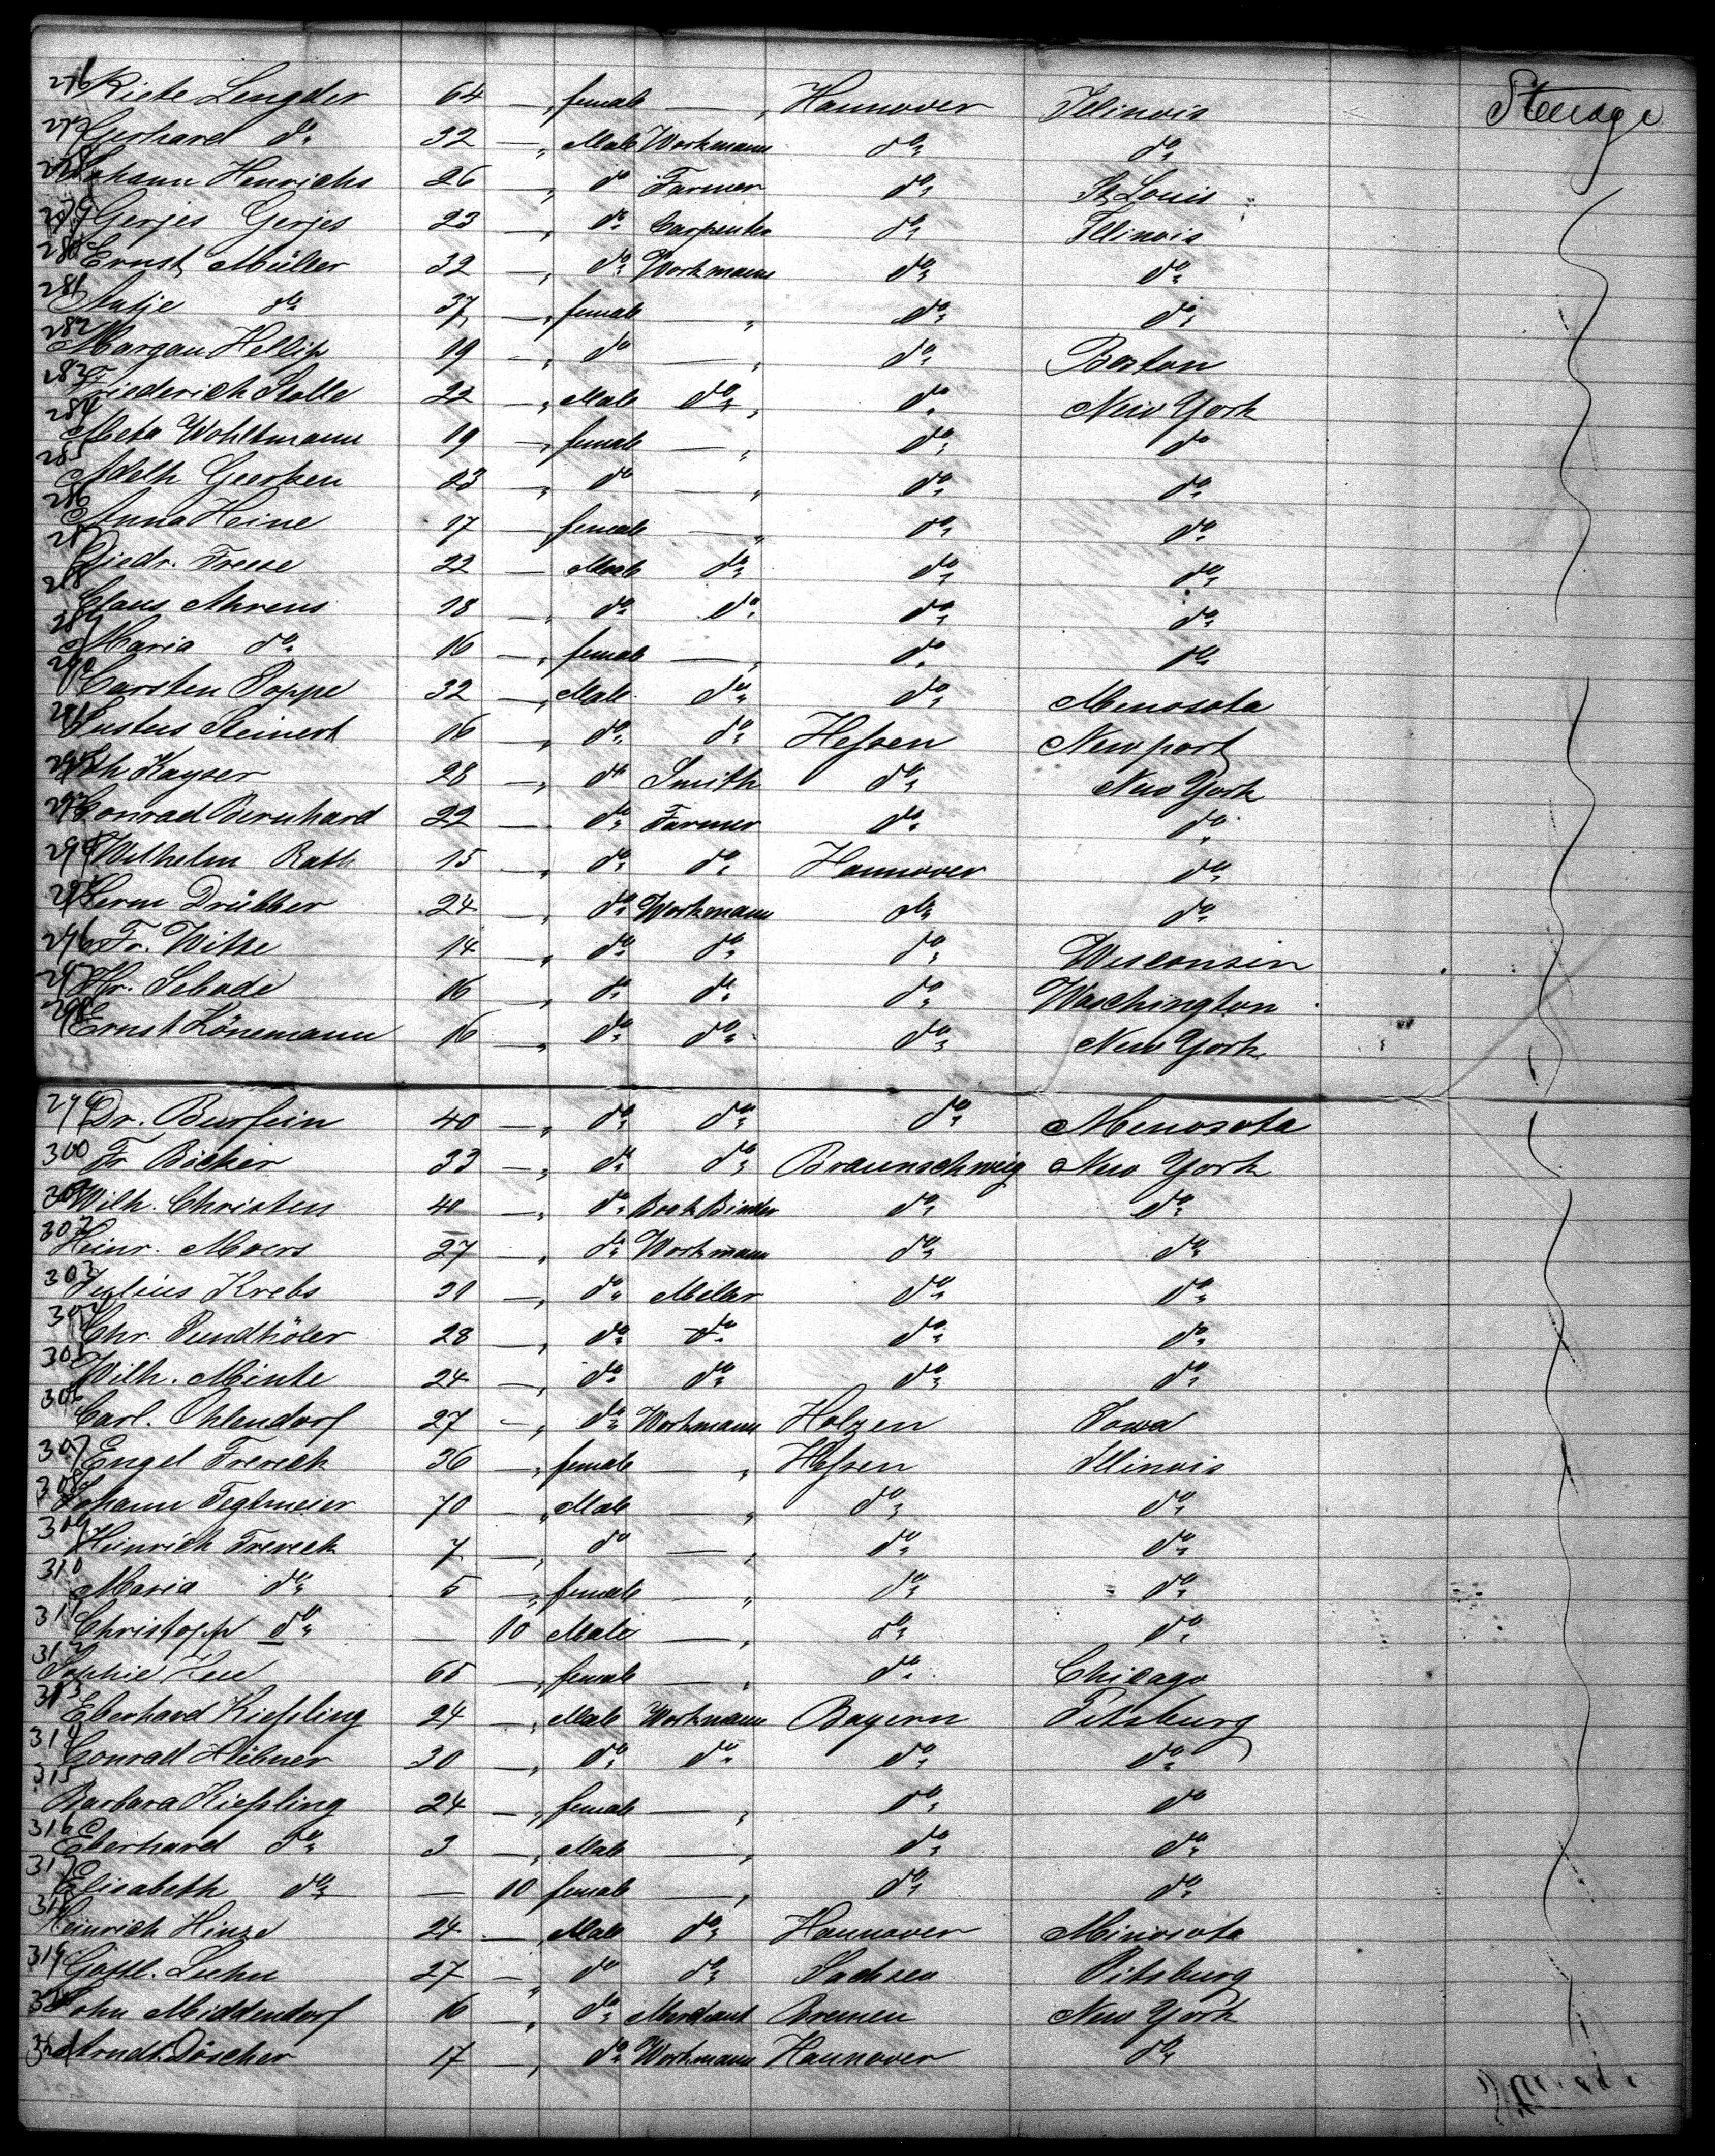 Steerage
276 Riete Lengder 64 — „ female — „ Hannover Illinois
277 Gerhard do. 32 — „ Male Workmann do. do.
278 Johann Henrichs 26 — „ do Farmer do. St. Louis
279 Gerjes Gerjes 23 — „ do. Carpenter do. Illinois
280 Ernst Müller 32 — „ do. Workmann do. do.
281 Antje do 37 — „ female — „ do. do.
282 Margau Hellip 19 — „ do — „ do. Boston
283 Friederich Stolle 22 — „ Male do. „ do. New York
284 Meta Wohltmann 19 — „ female — „ do. do
285 Adelh Geerken 23 — „ do — „ do. do.
286 Anna Heine 17 — female — „ do. do.
287 Diedr. Freese 22 — Male do. do. do.
288 Claus Ahrens 18 — „ do. do. do. do.
289 Maria do. 16 — „ female — „ do. do.
290 Carsten Poppe 32 — „ Male do. do. Menosota
291 Justus Steinert 16 — „ do. do. Hessen Newport
292 Joh Kayser 28 — „ do Smith do. New York
293 Conrad Bernhard 22 — do. Farmer do. do.
294 Wilhelm Rath 15 — „ do. do. Hannover do.
295 Herm Drübber 24 — „ do. Workmann do. do.
296 Fr. Witte 14 — „ do. do. do. Wisconsin
297 Hr. Sebode 16 — „ do. do. do. Waschington
298 Ernst Könemann 16 — „ do. do. do. New York
299 Dr. Burfein 40 — „ do. do. do Menosota
300 Fr Böcker 33 — „ do. do. Braunschweig New York
301 Wilh. Christen 40 — „ do. Book Binder do. do.
302 Heinr. Moers 27 — „ do. Workmann do. do.
303 Julius Krebs — „ do. Miller do. do.
304 Chr. Pundhöler 28 — „ do. do. do. do.
305 Wilh. Minte 24 — „ do. do. do. do.
306 Carl. Ohlendorf 27 — „ do. Workmann Holzen Iowa
307 Engel Frereck 36 — „ female — „ Hessen Illinois
308 Johann Tegtmeier 70 — „ Male — „ do. do.
309 Heinrich Frereck 7 — „ do — „ do. do.
310 Maria do. 5 — „ female — „ do. do.
311 Christopp do. — 10 Male — „ do. do.
312 Sophie Leue 65 — „ female — „ do. Chicago
313 Eberhard Kiessling 24 — „ Male Workmann Bayern Pitsburg
314 Conrad Hübner 30 — „ do. do. do. do.
315 Barbara Kiessling 24 — „ female — „ do. do
316 Eberhard do. 3 — „ Male — „ do. do.
317 Elisabeth do. — 10 female — „ do. do.
318 Heinrich Hinze 24 — „ Male do. Hannover Minosota
319 Gottl. Luhn 27 — „ do do. Sachsen Pitsburg
320 John Middendorf 16 — „ do. Merchant Bremen New York
321 Arndt. Döscher 17 — „ do. Workmann Hannover do.